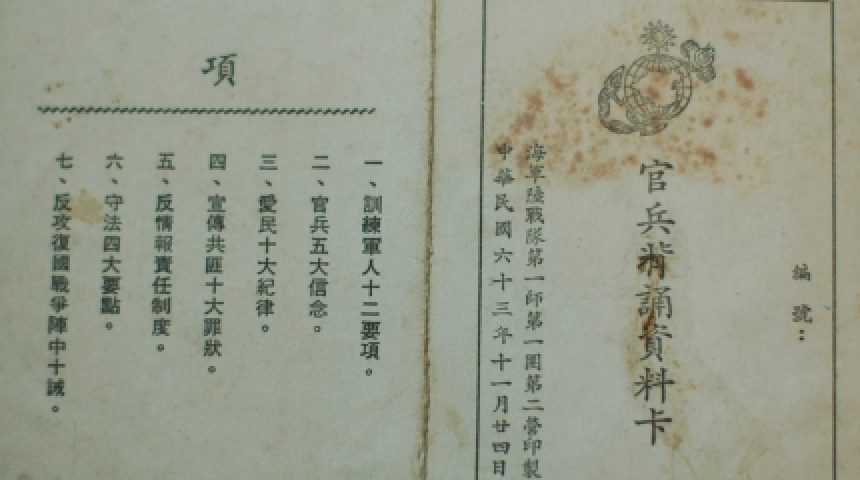 編號：
官兵背誦資料卡
海軍陸戰隊第一師第一團第二營印製
中華民國六十三年十一月廿四日
項
一、訓練軍人十二要項。
二、官兵五大信念。
三、愛民十大紀律。
四、宣傳共匪十大罪狀。
五、反情報責任制度。
六、守法四大要點。
七、反攻復國戰爭陣中十誡。